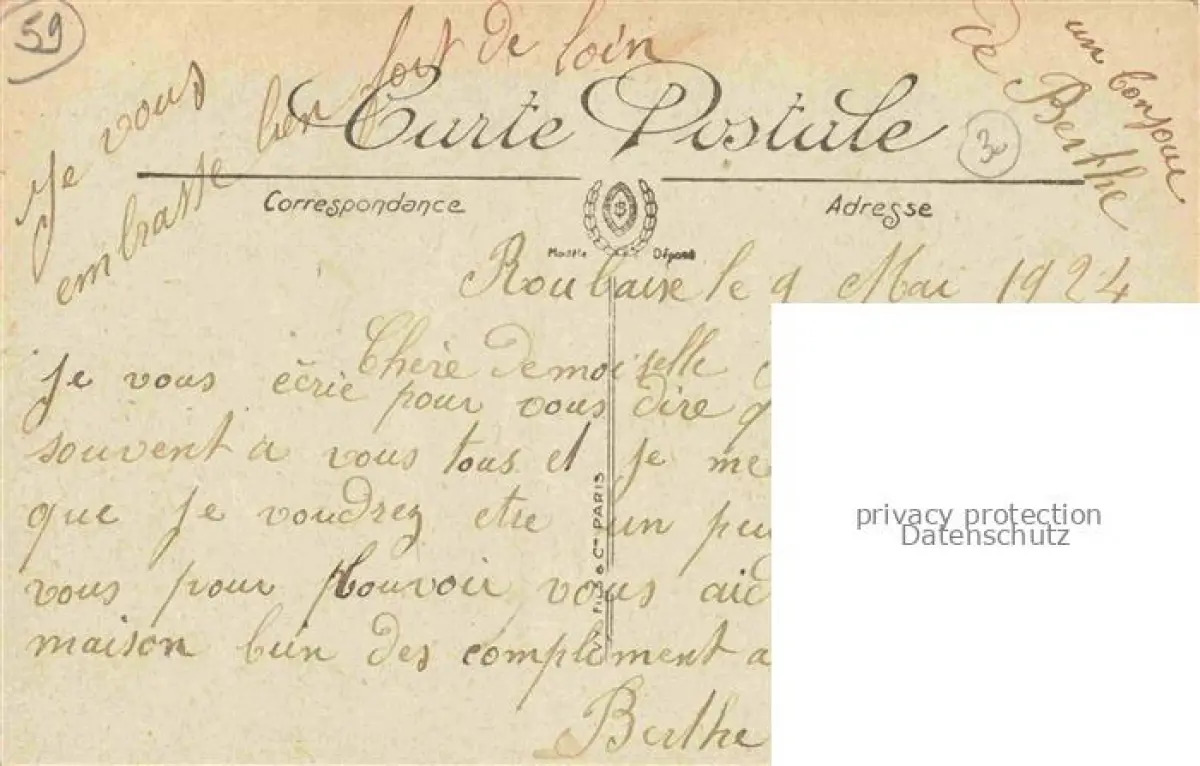 59
Je vous
embrasse bien fort de loin
un bonjour
de Berthe
Carte Postale
30
Correspondance
Adresse
Modèle Déposé
Roubaix le 9 Mai 1924
Chère demoiselle
Je vous écrie pour vous dire q
souvent a vous tous et je me
que je voudrez etre un peu
vous pour pouvoir vous aid
maison bien des compliment a
Berthe
FILS & Cie PARIS
privacy protection
Datenschutz